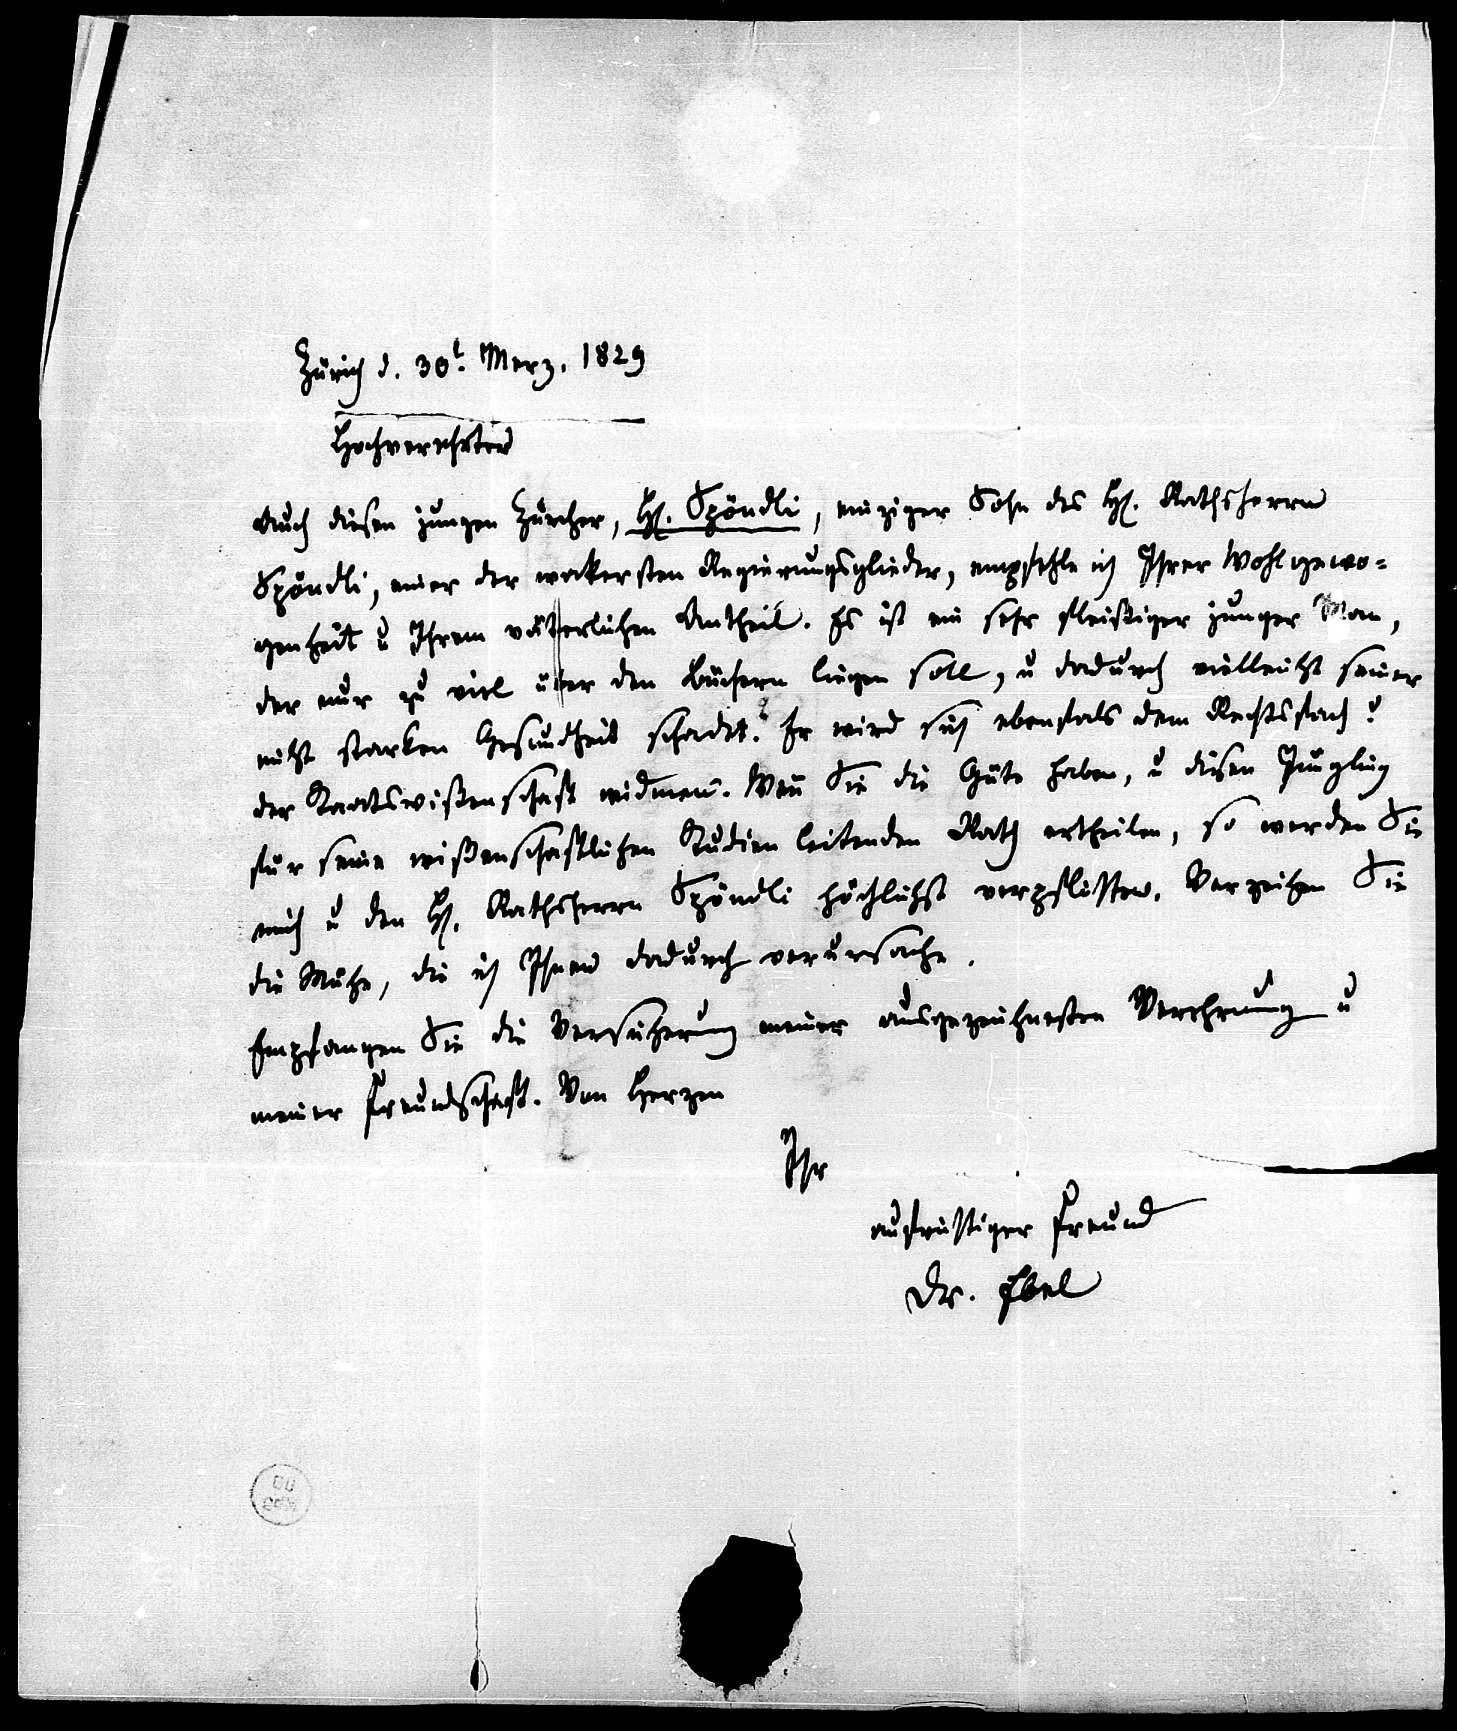 Zürich d. 30t. Merz. 1829
Hochverehrter
Auch diesen jungen Zürcher, H. Spöndli, einziger Sohn des H. Rathsherrn
Spöndli, einer der wackersten Regierungsglieder, empfehle ich Ihrer Wohlgewo-
genheit u Ihrem väterlichen Antheil. Es ist ein sehr fleißiger junger Man,
der nur zu viel über den Büchern liegen soll, u dadurch vielleicht seiner
nicht starken Gesundheit schadet. Er wird sich ebenfals dem Rechtsfach u
der Staatswißenschaft widmen. Wen̄ Sie die Güte haben, u diesen Jüngling
für seine wißenschaftlichen Studien leitenden Rath ertheilen, so werden Sie
mich u den H. Rathsherrn Spöndli höchlichst verpflichten. Verzeihen Sie
die Mühe, die ich Ihnen dadurch verursache.
Empfangen Sie die Versicherung meiner ausgezeichnesten Verehrung u
meiner Freundschaft. Von Herzen
Ihr
aufrichtiger Freund
Dr. Ebel